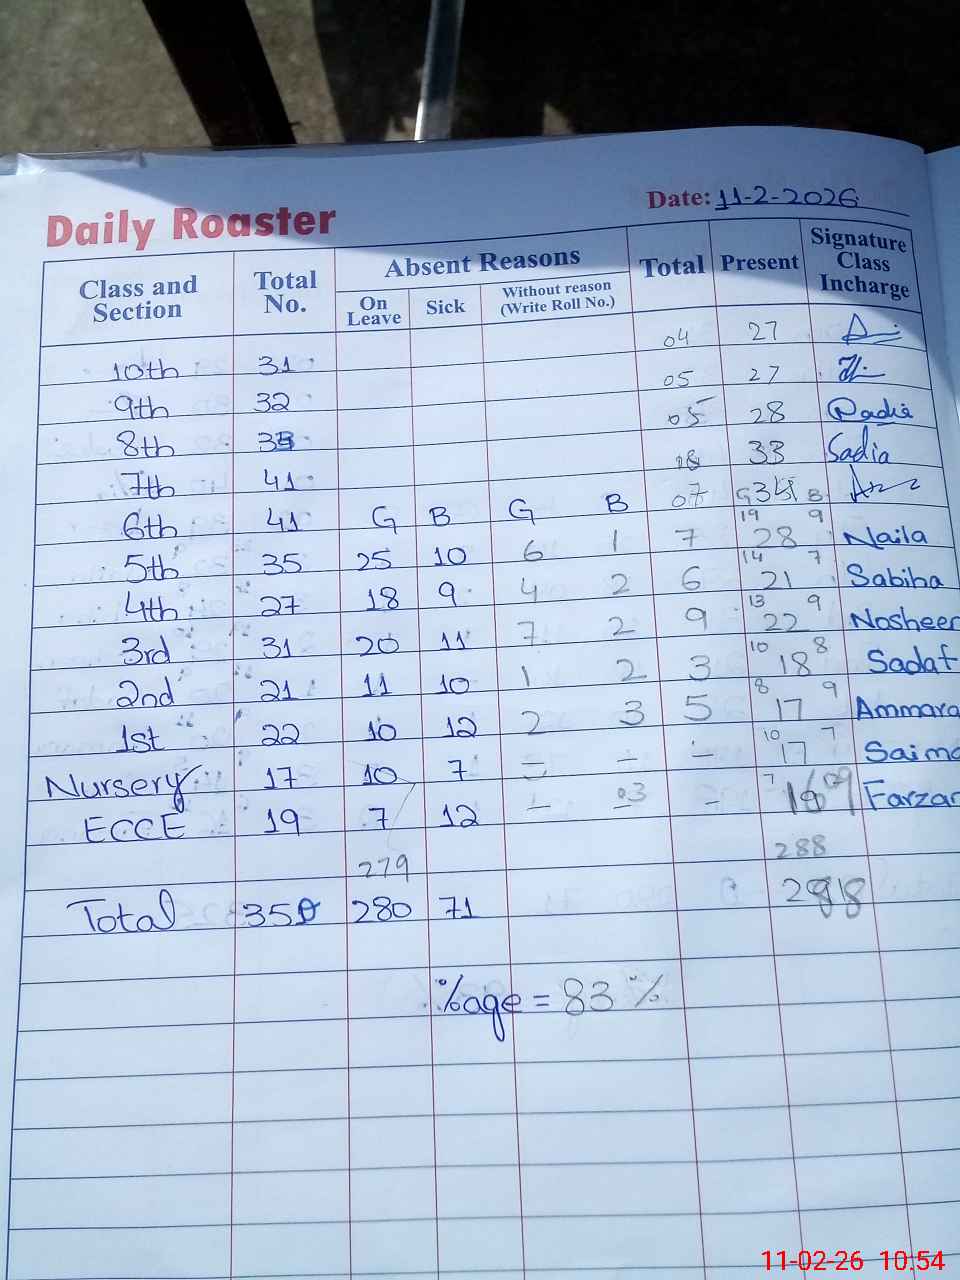 Daily Roaster
Date: 11-2-2026
Class and Section Total No. Absent Reasons Total Present Signature Class Incharge
On Leave Sick Without reason (Write Roll No.)
10th 31 04 27
9th 32 05 27
8th 33 05 28 Radia
7th 41 33 Sadia
6th 41 G B G B 07 G 34 B
5th 35 25 10 6 1 7 19 28 9 Naila
4th 27 18 9 4 2 6 14 21 7 Sabiha
3rd 31 20 11 7 2 9 13 22 9 Nosheen
2nd 21 11 10 1 2 3 10 18 8 Sadaf
1st 22 10 12 2 3 5 8 17 9 Ammara
Nursery 17 10 7 = - - 10 17 7 Saima
ECCE 19 7 12 - 03 - 7 Farzan
279 288
Total 350 280 71
%age = 83 %
11-02-26 10.54